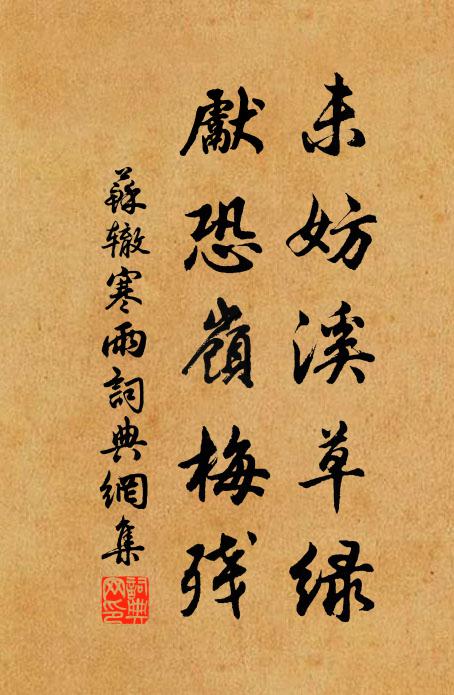 未妨溪草緑
獻恐嶺梅残
蘇辙寒雨詞典網集
詞典网印